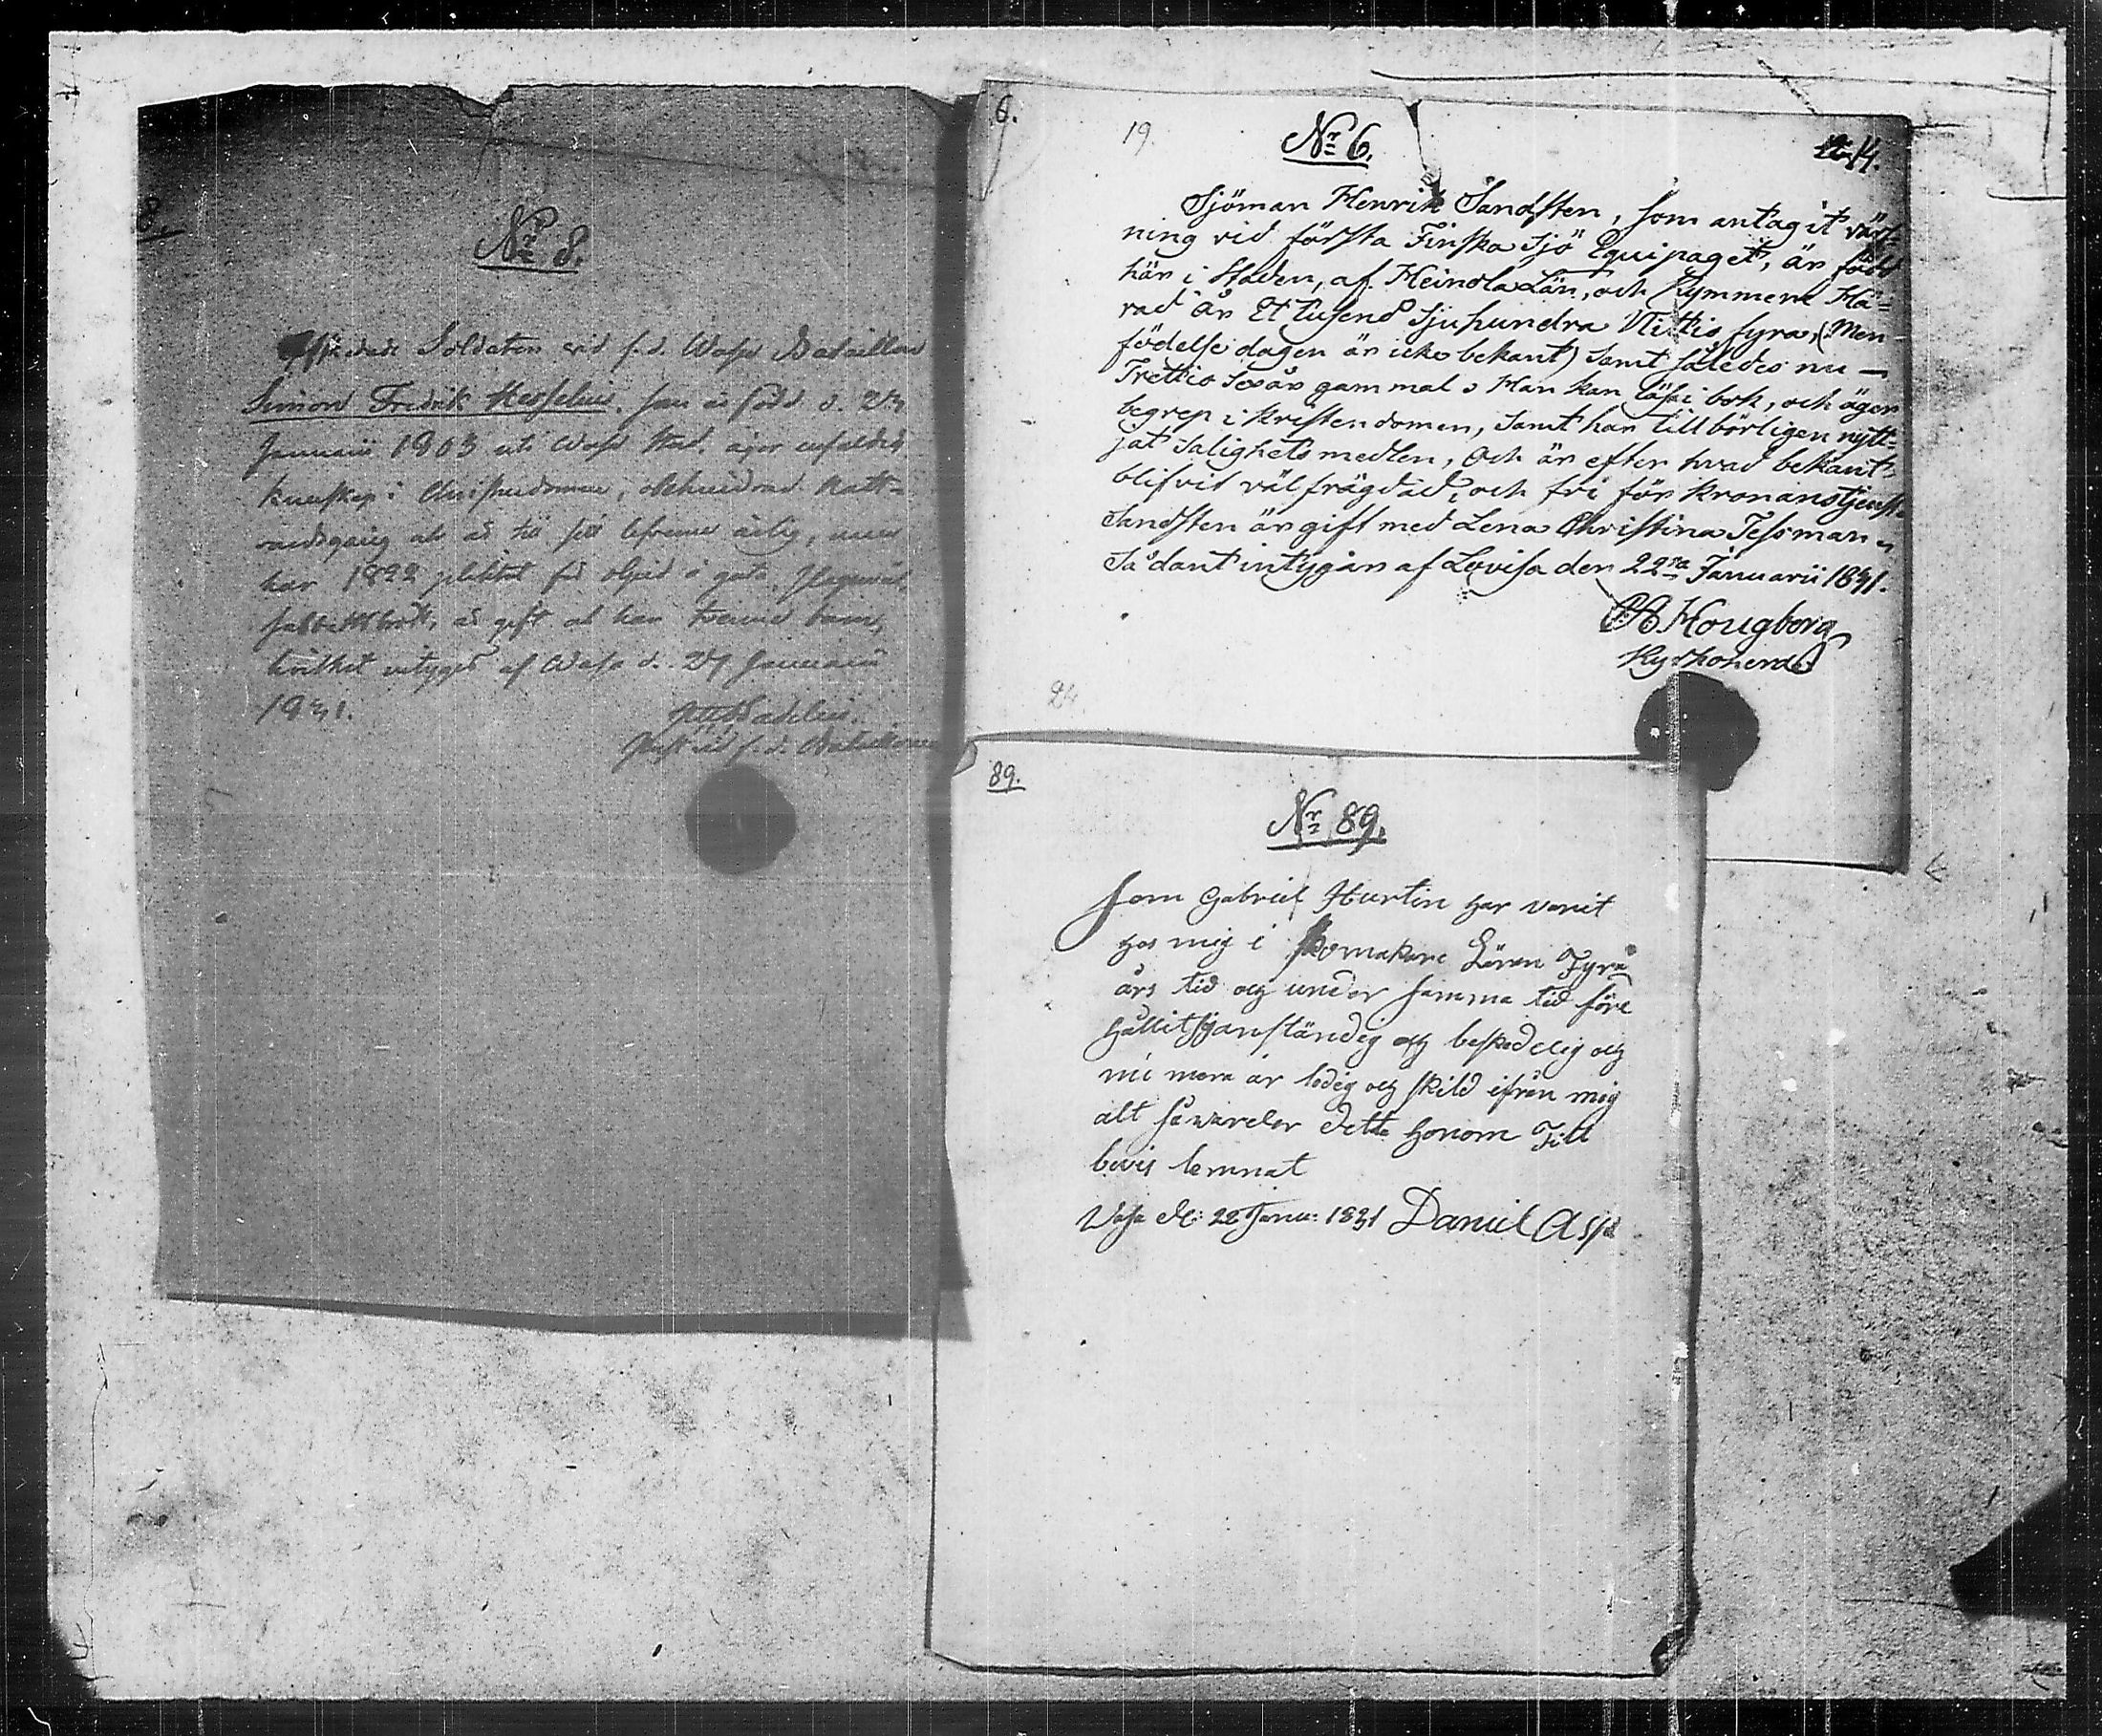 8.
Nr 8.
Afskedade Soldaten vid f. d. Wasa Bataillon
Simon Fredrik Hesselius, som är född d.
Januarii 1803 uti Wasa Stad, äger enfaldig
kunskap i Christendomen, obehindrad Natt-
vardsgång och är till sitt leferne ärlig, men
har 1822 pliktat för oljud å gata,
sabbatsbrott, är gift och har trenne barn,
hvilket intygas af Wasa d. 27 Januarii
1831.
f. d. Bataillonen
6.
19.
Nr 6.
14.
Sjöman Henrik Sandsten, som antagit värf-
ning vid första Finska Sjö Equipaget, är född
här i Staden, af Heinola Län, och Kymmene Hä-
rad år Et tusend Sjuhundra Nittio fyra, (Men
födelse dagen är icke bekant) samt således nu —
Trettio Sex år gammal. Han kan läsa i bok, och äger
begrep i kristendomen, samt har tillbörligen nytt-
jat Salighets medlen, och är efter hvad bekant
blifvit väl frägdad, och fri för Kronans tjenst.
Sandsten är gift med Lena Christina Tessman.
Sådant intygar af Lovisa den 22ra Januarii 1831.
Hougberg
Kyrkoherde
24.
89.
Nr 89.
Som Gabriel Hurtin har varit
hos mig i Skomakare Läran Fyra
års tid och under samma tid före
hållit sig anständig och beskedelig och
nu mera är ledig och skild ifrån mig
alt så varder detta honom Till
bevis lemnat
Vasa de: 22 Janu: 1831 Daniel Asp